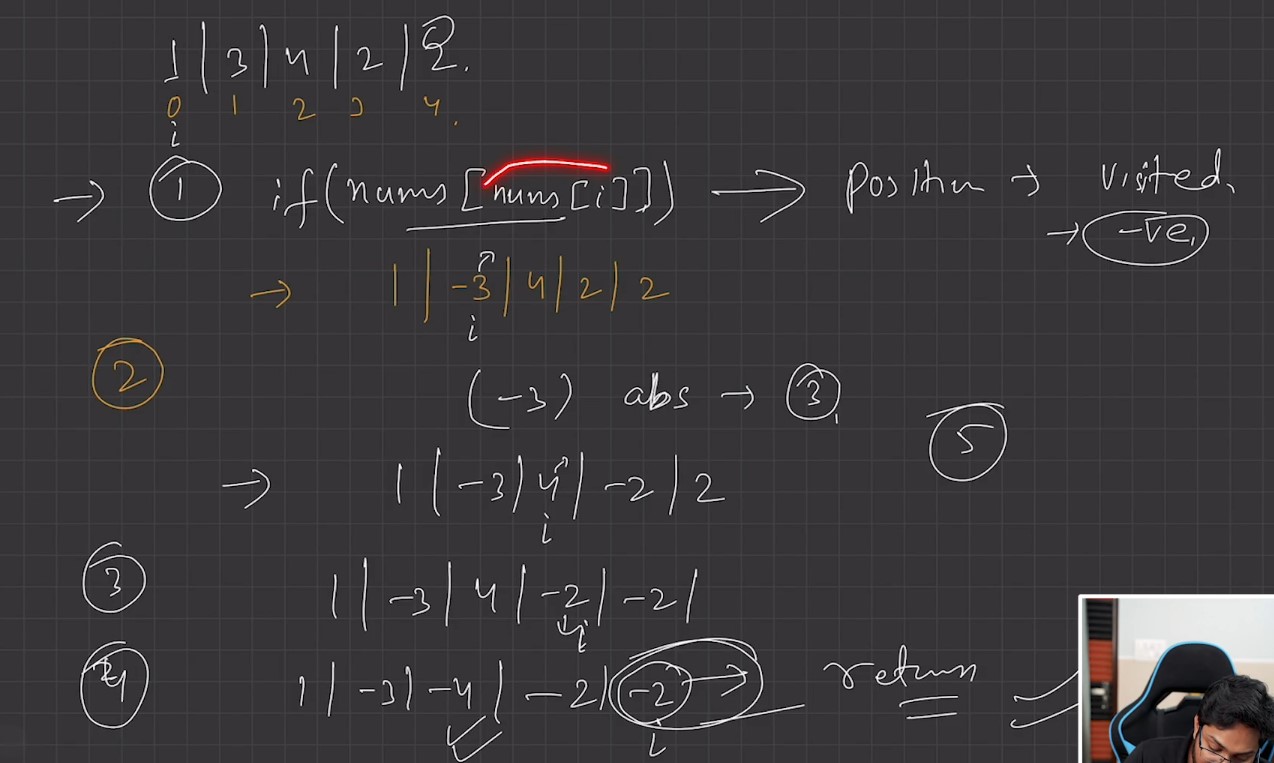 1 | 3 | 4 | 2 | 2.
0 1 2 3 4 .
i
→ ① if(nums[nums[i]]) → Position → Visited.
→ -ve.
→ 1 | -3 | 4 | 2 | 2
i
②
(-3) abs → ③
⑤
→ 1 | -3 | 4 | -2 | 2
i
③ 1 | -3 | 4 | -2 | -2 |
i
④ 1 | -3 | -4 | -2 | -2 → return
i